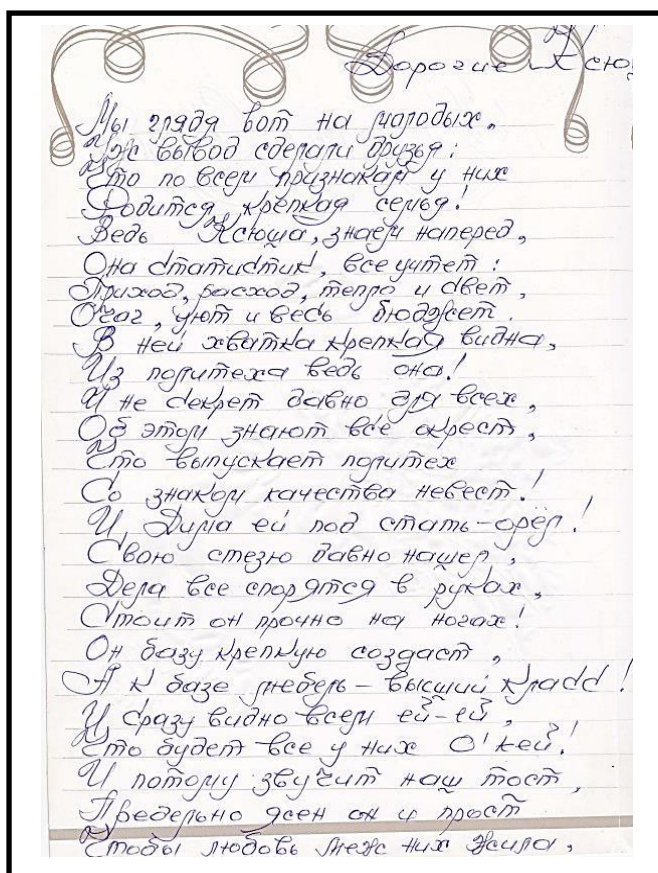 Дорогие Ксю
Мы глядя вот на молодых,
Уж вывод сделали друзья:
Что по всем признакам у них
Родится крепкая семья!
Ведь Ксюша, знаем наперед,
Она статистик, все учтет:
Приход, расход, тепло и свет,
Очаг, уют и весь бюджет.
В ней хватка крепкая видна,
Из политеха ведь она!
И не секрет давно для всех,
Об этом знают все окрест,
Что выпускает политех
Со знаком качества невест!
И Дима ей под стать-орёл!
Свою стезю давно нашел,
Дела все спорятся в руках,
Стоит он прочно на ногах!
Он базу крепкую создаст,
А к базе мебель - высший класс!
И сразу видно всем ей-ей,
Что будет все у них О'кей!
И потому звучит наш тост,
Предельно ясен он и прост
Чтобы любовь меж них жила,